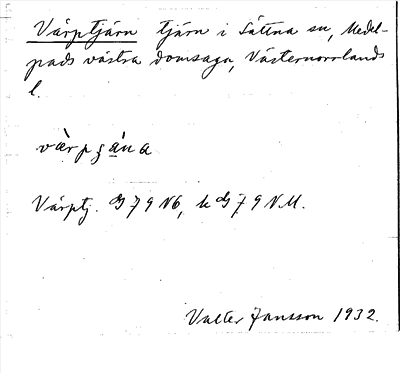 Värptjärn tjärn i Sättna sn, Medel-
pads västra domsaga, Västernorrlands
l.
värpgäna
Värptj. G 79 N6, k G 79 N.M.
Valter Jansson 1932.